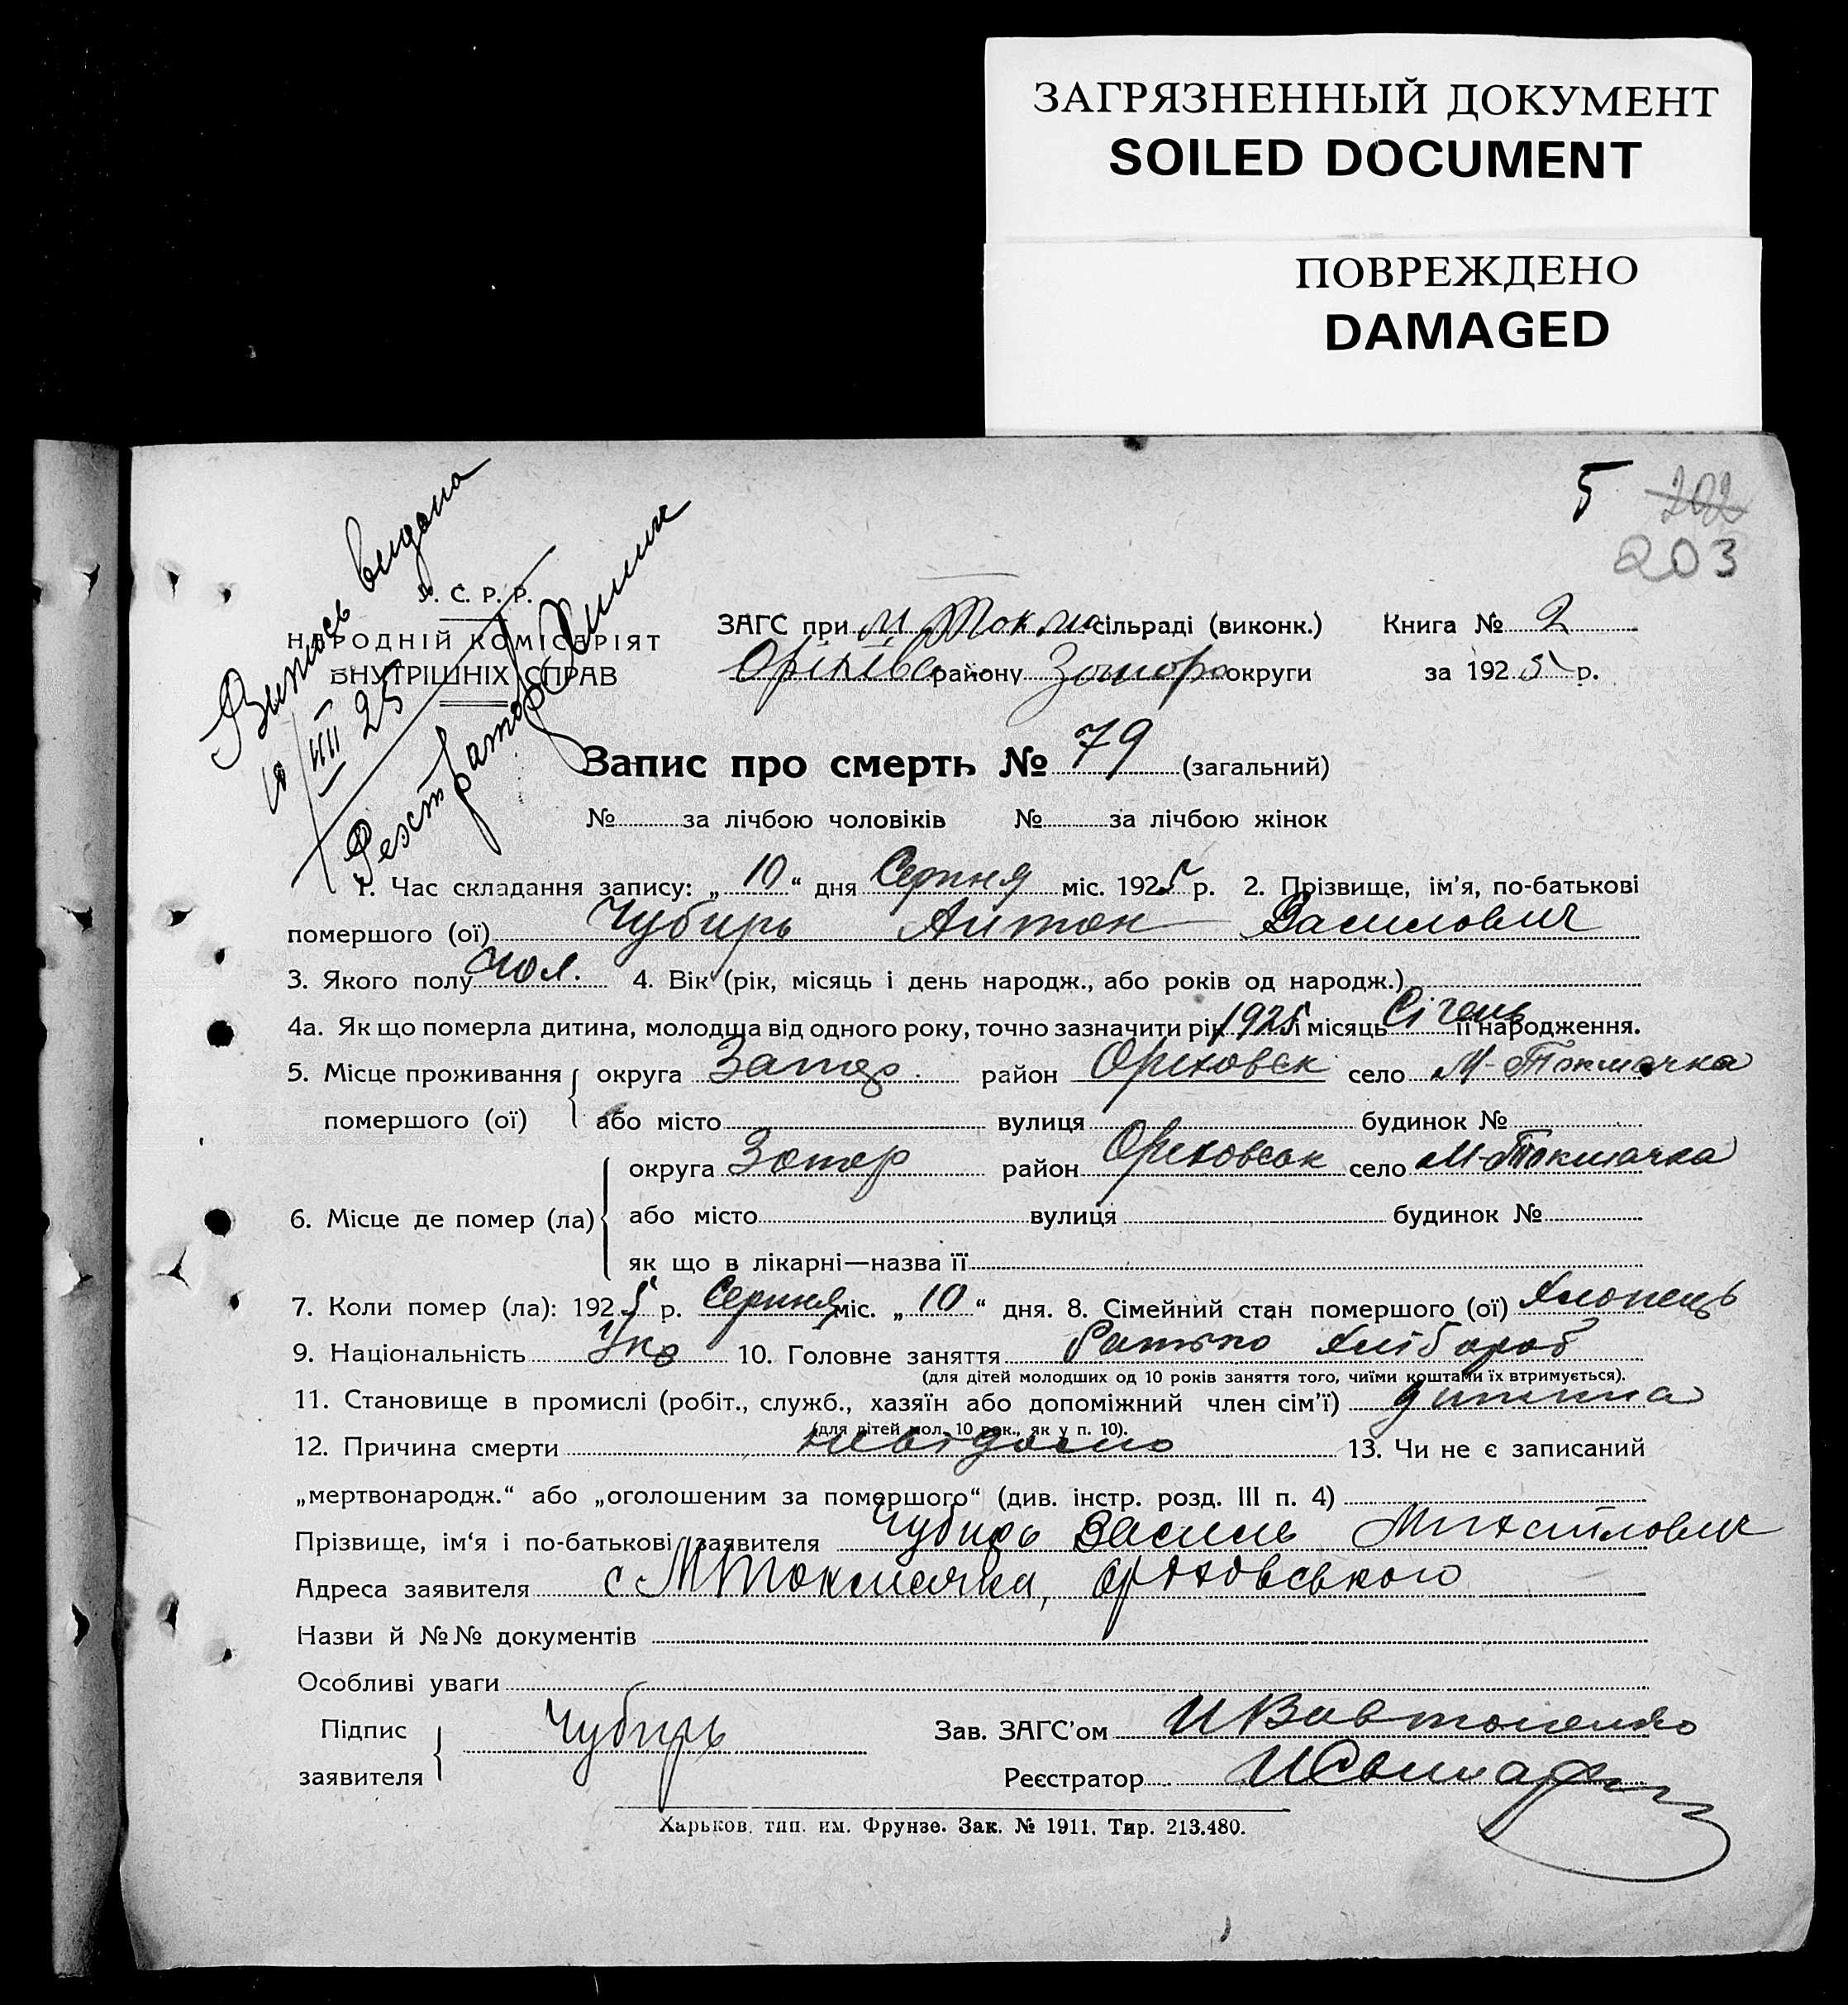 ЗАГРЯЗНЕННЫЙ ДОКУМЕНТ
SOILED DOCUMENT
ПОВРЕЖДЕНО
DAMAGED
5 202
203
Випись видана
VIII 25
С. Р. Р.
НАРОДНІЙ КОМІСАРІЯТ
ВНУТРІШНІХ СПРАВ
ЗАГС при М Токма сільраді (виконк.) Книга № 2
Оріхівс району Запор округи за 1925 р.
Запис про смерть № 79 (загальний)
№ за лічбою чоловіків № за лічбою жінок
1. Час складання запису: „10“ дня Серпня міс. 1925 р. 2. Прізвище, ім'я, по-батькові
помершого (ої) Чубирь Антон Василович
3. Якого полу чол. 4. Вік (рік, місяць і день народж., або років од народж.)
4а. Як що померла дитина, молодша від одного року, точно зазначити рік 1925 і місяць Січень її народження.
5. Місце проживання округа Запор. район Ореховск село М-Токмачка
помершого (ої) або місто вулиця будинок №
округа Запор район Ореховск село М-Токмачка
6. Місце де помер (ла) або місто вулиця будинок №
як що в лікарні—назва її
7. Коли помер (ла): 1925 р. Серпня міс. „10“ дня. 8. Сімейний стан помершого (ої) Хлопець
9. Національність Укр 10. Головне заняття хлібороб
(для дітей молодших од 10 років заняття того, чиїми коштами їх втримується).
11. Становище в промислі (робіт., служб., хазяїн або допоміжний член сім'ї) дитина
(для дітей мол. 10 рок., як у п. 10).
12. Причина смерти невідомо 13. Чи не є записаний
„мертвонародж.“ або „оголошеним за помершого“ (див. інстр. розд. III п. 4)
Прізвище, ім'я і по-батькові заявителя Чубирь Василь Михайлович
Адреса заявителя с М Токмачка,
Назви й №№ документів
Особливі уваги
Підпис заявителя Чубирь Зав. ЗАГС'ом
Реєстратор
Харьков. тип. им. Фрунзе. Зак. № 1911. Тир. 213.480.